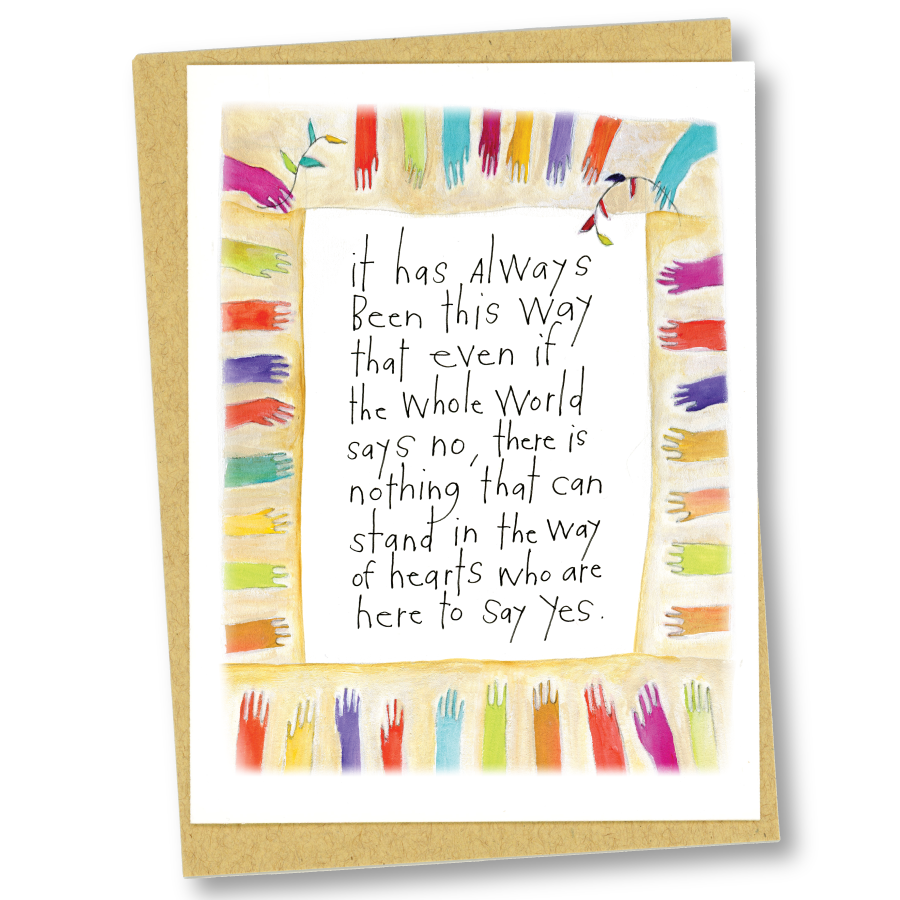 it has Always
Been this way
that even if
the whole world
says no, there is
nothing that can
stand in the way
of hearts who are
here to say yes.